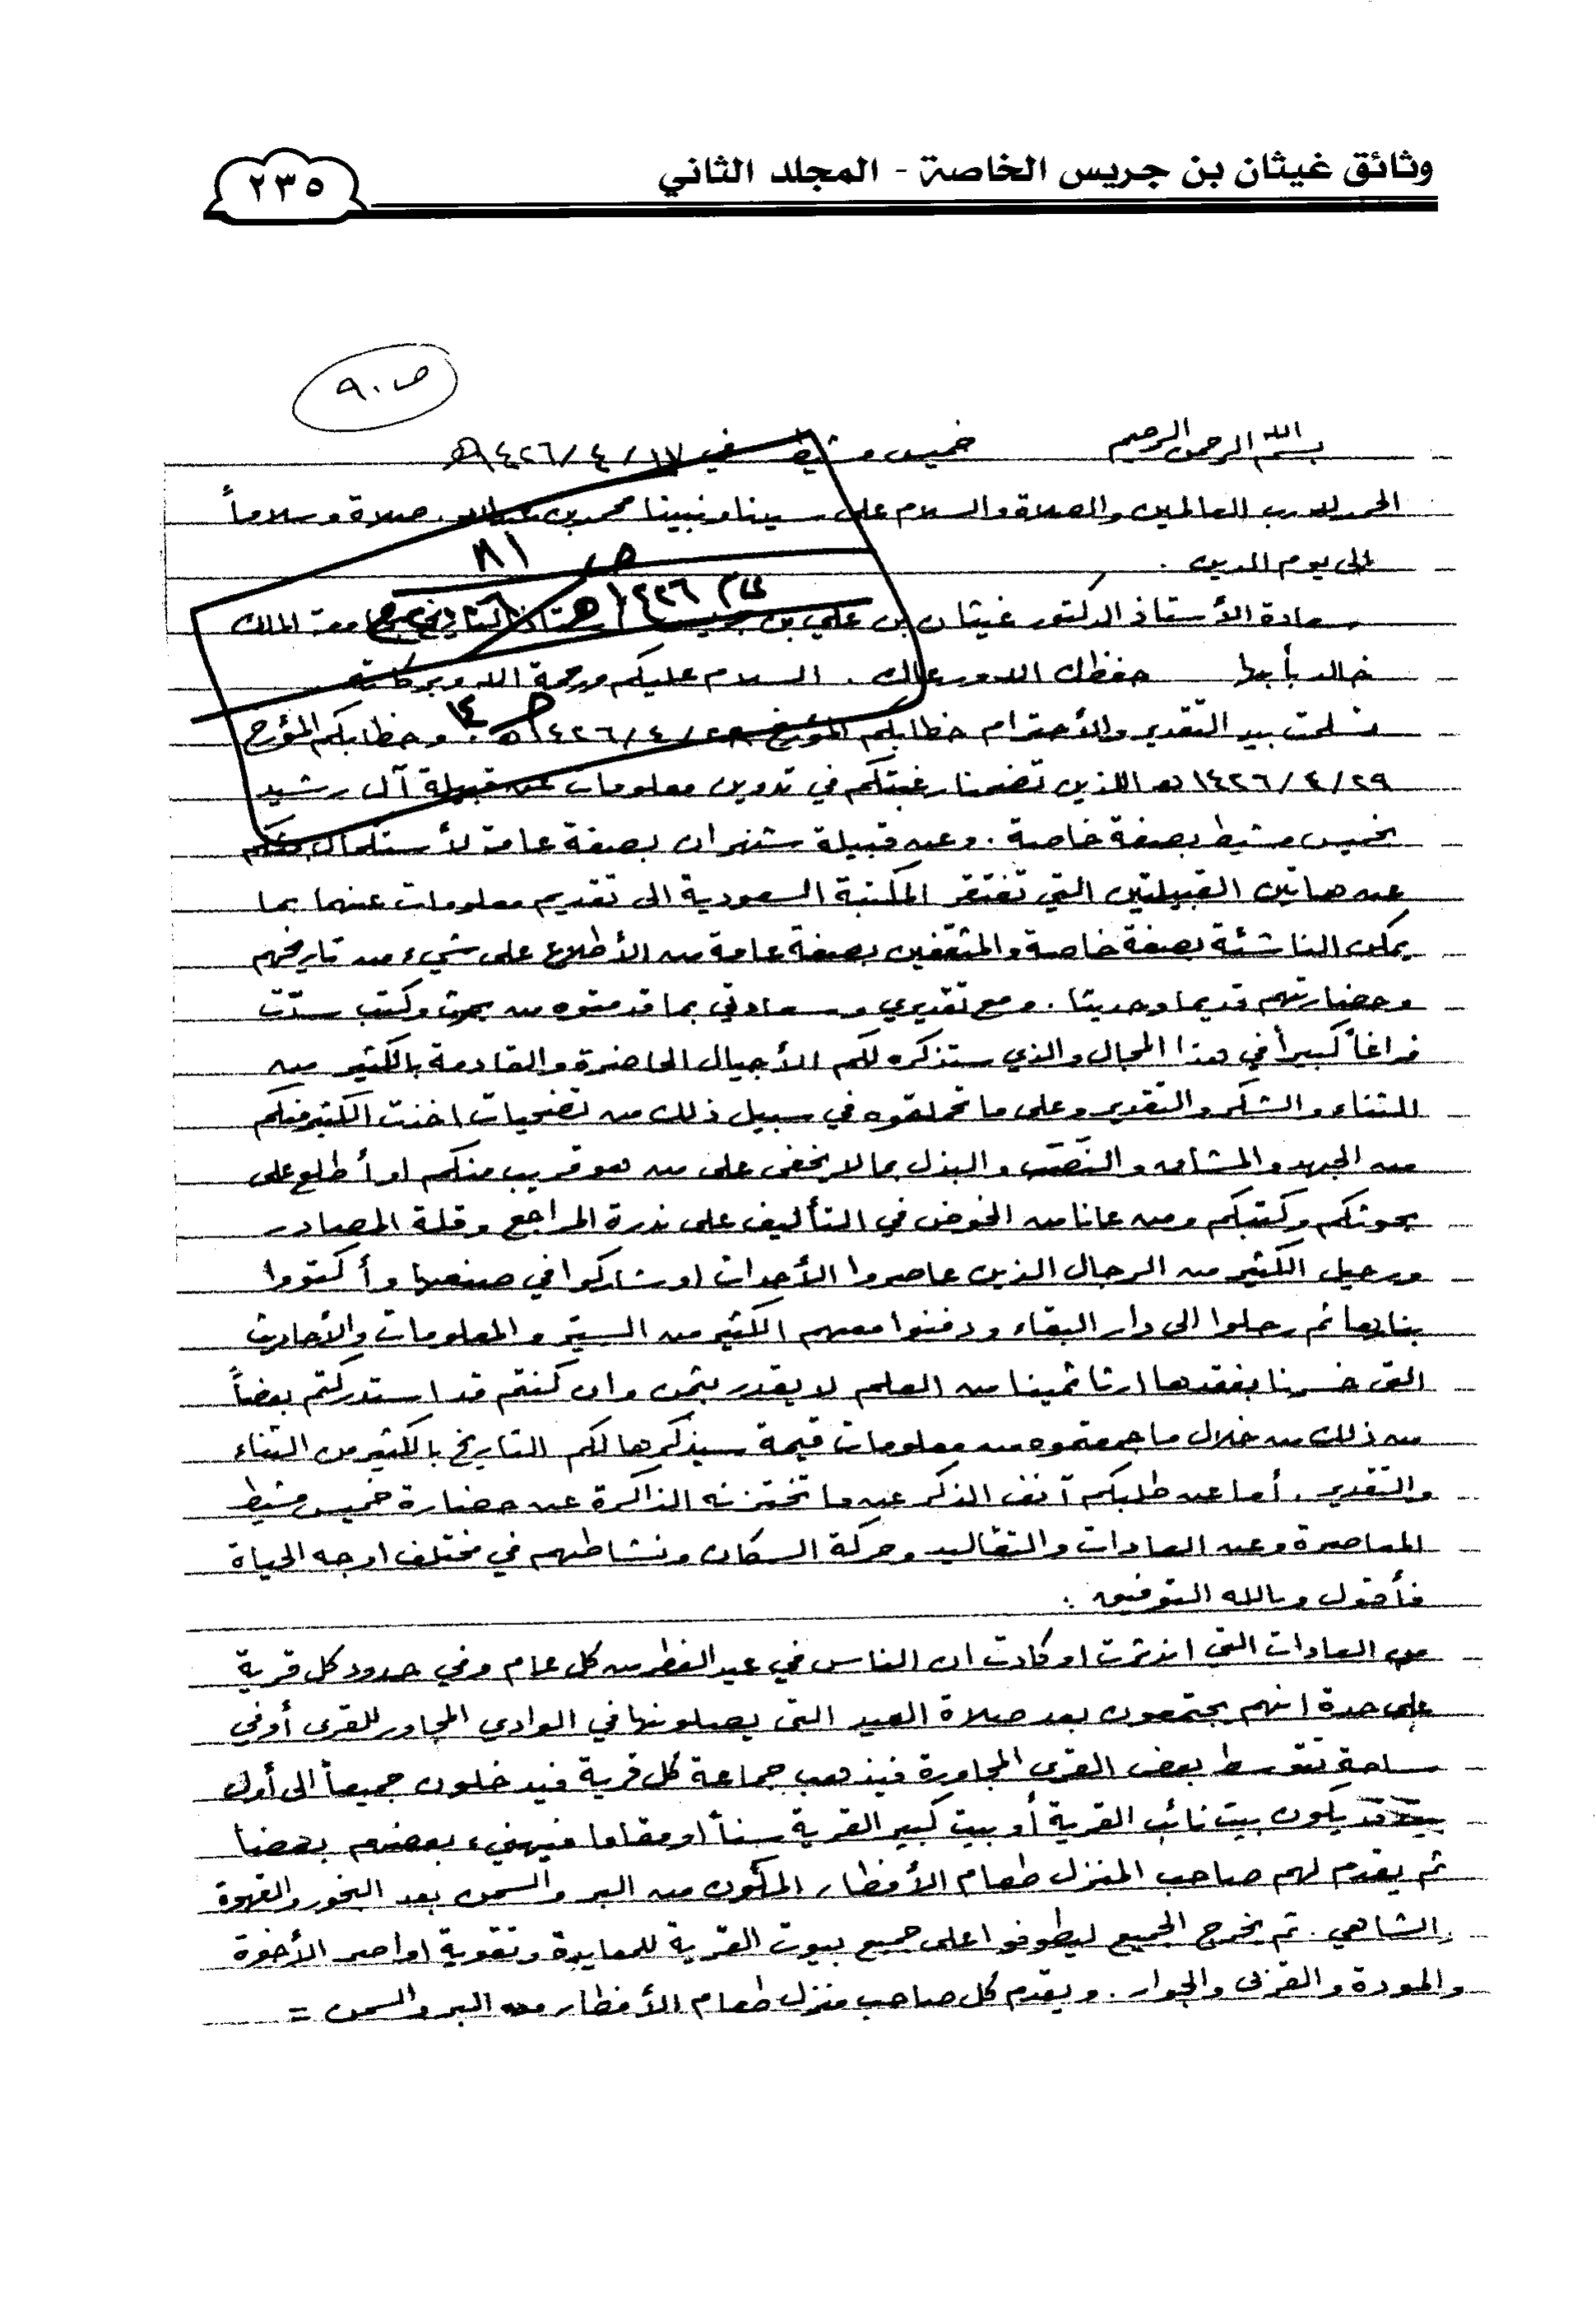 وثائق غيثان بن جريس الخاصة - المجلد الثاني
٢٣٥
ص ٩٠
بسم الله الرحمن الرحيم خميس مشيط في ١٧/٤/١٤٢٦هـ
الحمد لله رب العالمين والصلاة والسلام على سيدنا ونبينا محمد بن عبدالله. صلاة وسلاماً
إلى يوم الدين.
ص ٨١
عام ١٤٢٦هـ
سعادة الأستاذ الدكتور غيثان بن علي بن جريس أستاذ التاريخ بجامعة الملك
خالد بأبها حفظك الله ورعاك. السلام عليكم ورحمة الله وبركاته
ص ١٤
تسلمت بيد التقدير والأحترام خطابكم المؤرخ ٢٨/٤/١٤٢٦هـ. وخطابكم المؤرخ
٢٩/٤/١٤٢٦هـ اللذين تضمنا رغبتكم في تدوين معلومات عن قبيلة آل رشيد
بخميس مشيط بصفة خاصة. وعن قبيلة شهران بصفة عامة لأستكمال
عن هاتين القبيلتين التي تفتقر المكتبة السعودية الى تقديم معلومات عنهما بما
يمكن الناشئة بصفة خاصة والمثقفين بصفة عامة من الأطلاع على شيء من تاريخهم
وحضارتهم قديما وحديثا. ومع تقديري وسعادتي بما قدمتوه من بحوث وكتب سدّت
فراغاً كبيراً في هذا المجال والذي ستذكره لكم الأجيال الحاضرة والقادمة بالكثير من
الثناء والشكر والتقدير وعلى ما تحملتوه في سبيل ذلك من تضحيات اخذت الكثير منكم
من الجهد والمشاق والنصب والبذل بما لا يخفى على من هو قريب منكم او أطلع على
بحوثكم وكتبكم ومن عانا من الخوض في التأليف على ندرة المراجع وقلة المصادر
ورحيل الكثير من الرجال الذين عاصروا الأحداث او شاركوا في صنعها وأكتووا
بنارها ثم رحلوا الى دار البقاء ودفنوا معهم الكثير من السير والمعلومات والأحاديث
التي خسرنا بفقدها ارثا ثمينا من العلم لا يقدر بثمن وان كنتم قد استدركتم بعضاً
من ذلك من خلال ما جمعتموه من معلومات قيمة سيذكرها لكم التاريخ بالكثير من الثناء
والتقدير. أما عن طلبكم آنف الذكر عن ما تختزنه الذاكرة عن حضارة خميس مشيط
المعاصرة وعن العادات والتقاليد وحركة السكان ونشاطهم في مختلف اوجه الحياة
فأقول وبالله التوفيق:
من العادات التي اندثرت او كادت ان الناس في عيد الفطر من كل عام وفي حدود كل قرية
على حدة انهم يجتمعون بعد صلاة العيد التي يصلونها في الوادي المجاور للقرى أو في
ساحة تتوسط بعض القرى المجاورة فيذهب جماعة كل قرية فيدخلون جميعاً الى أول
بيت قد يكون بيت نائب القرية أو بيت كبير القرية سناً او مقاما فيهنيء بعضهم بعضا
ثم يقدم لهم صاحب المنزل طعام الأفطار المكون من البر والسمن بعد البخور والقهوة
والشاهي. ثم يخرج الجميع ليطوفوا على جميع بيوت القرية للمعايدة وتقوية اواصر الأخوة
والمودة والقربى والجوار. ويقدم كل صاحب منزل طعام الأفطار من البر والسمن =